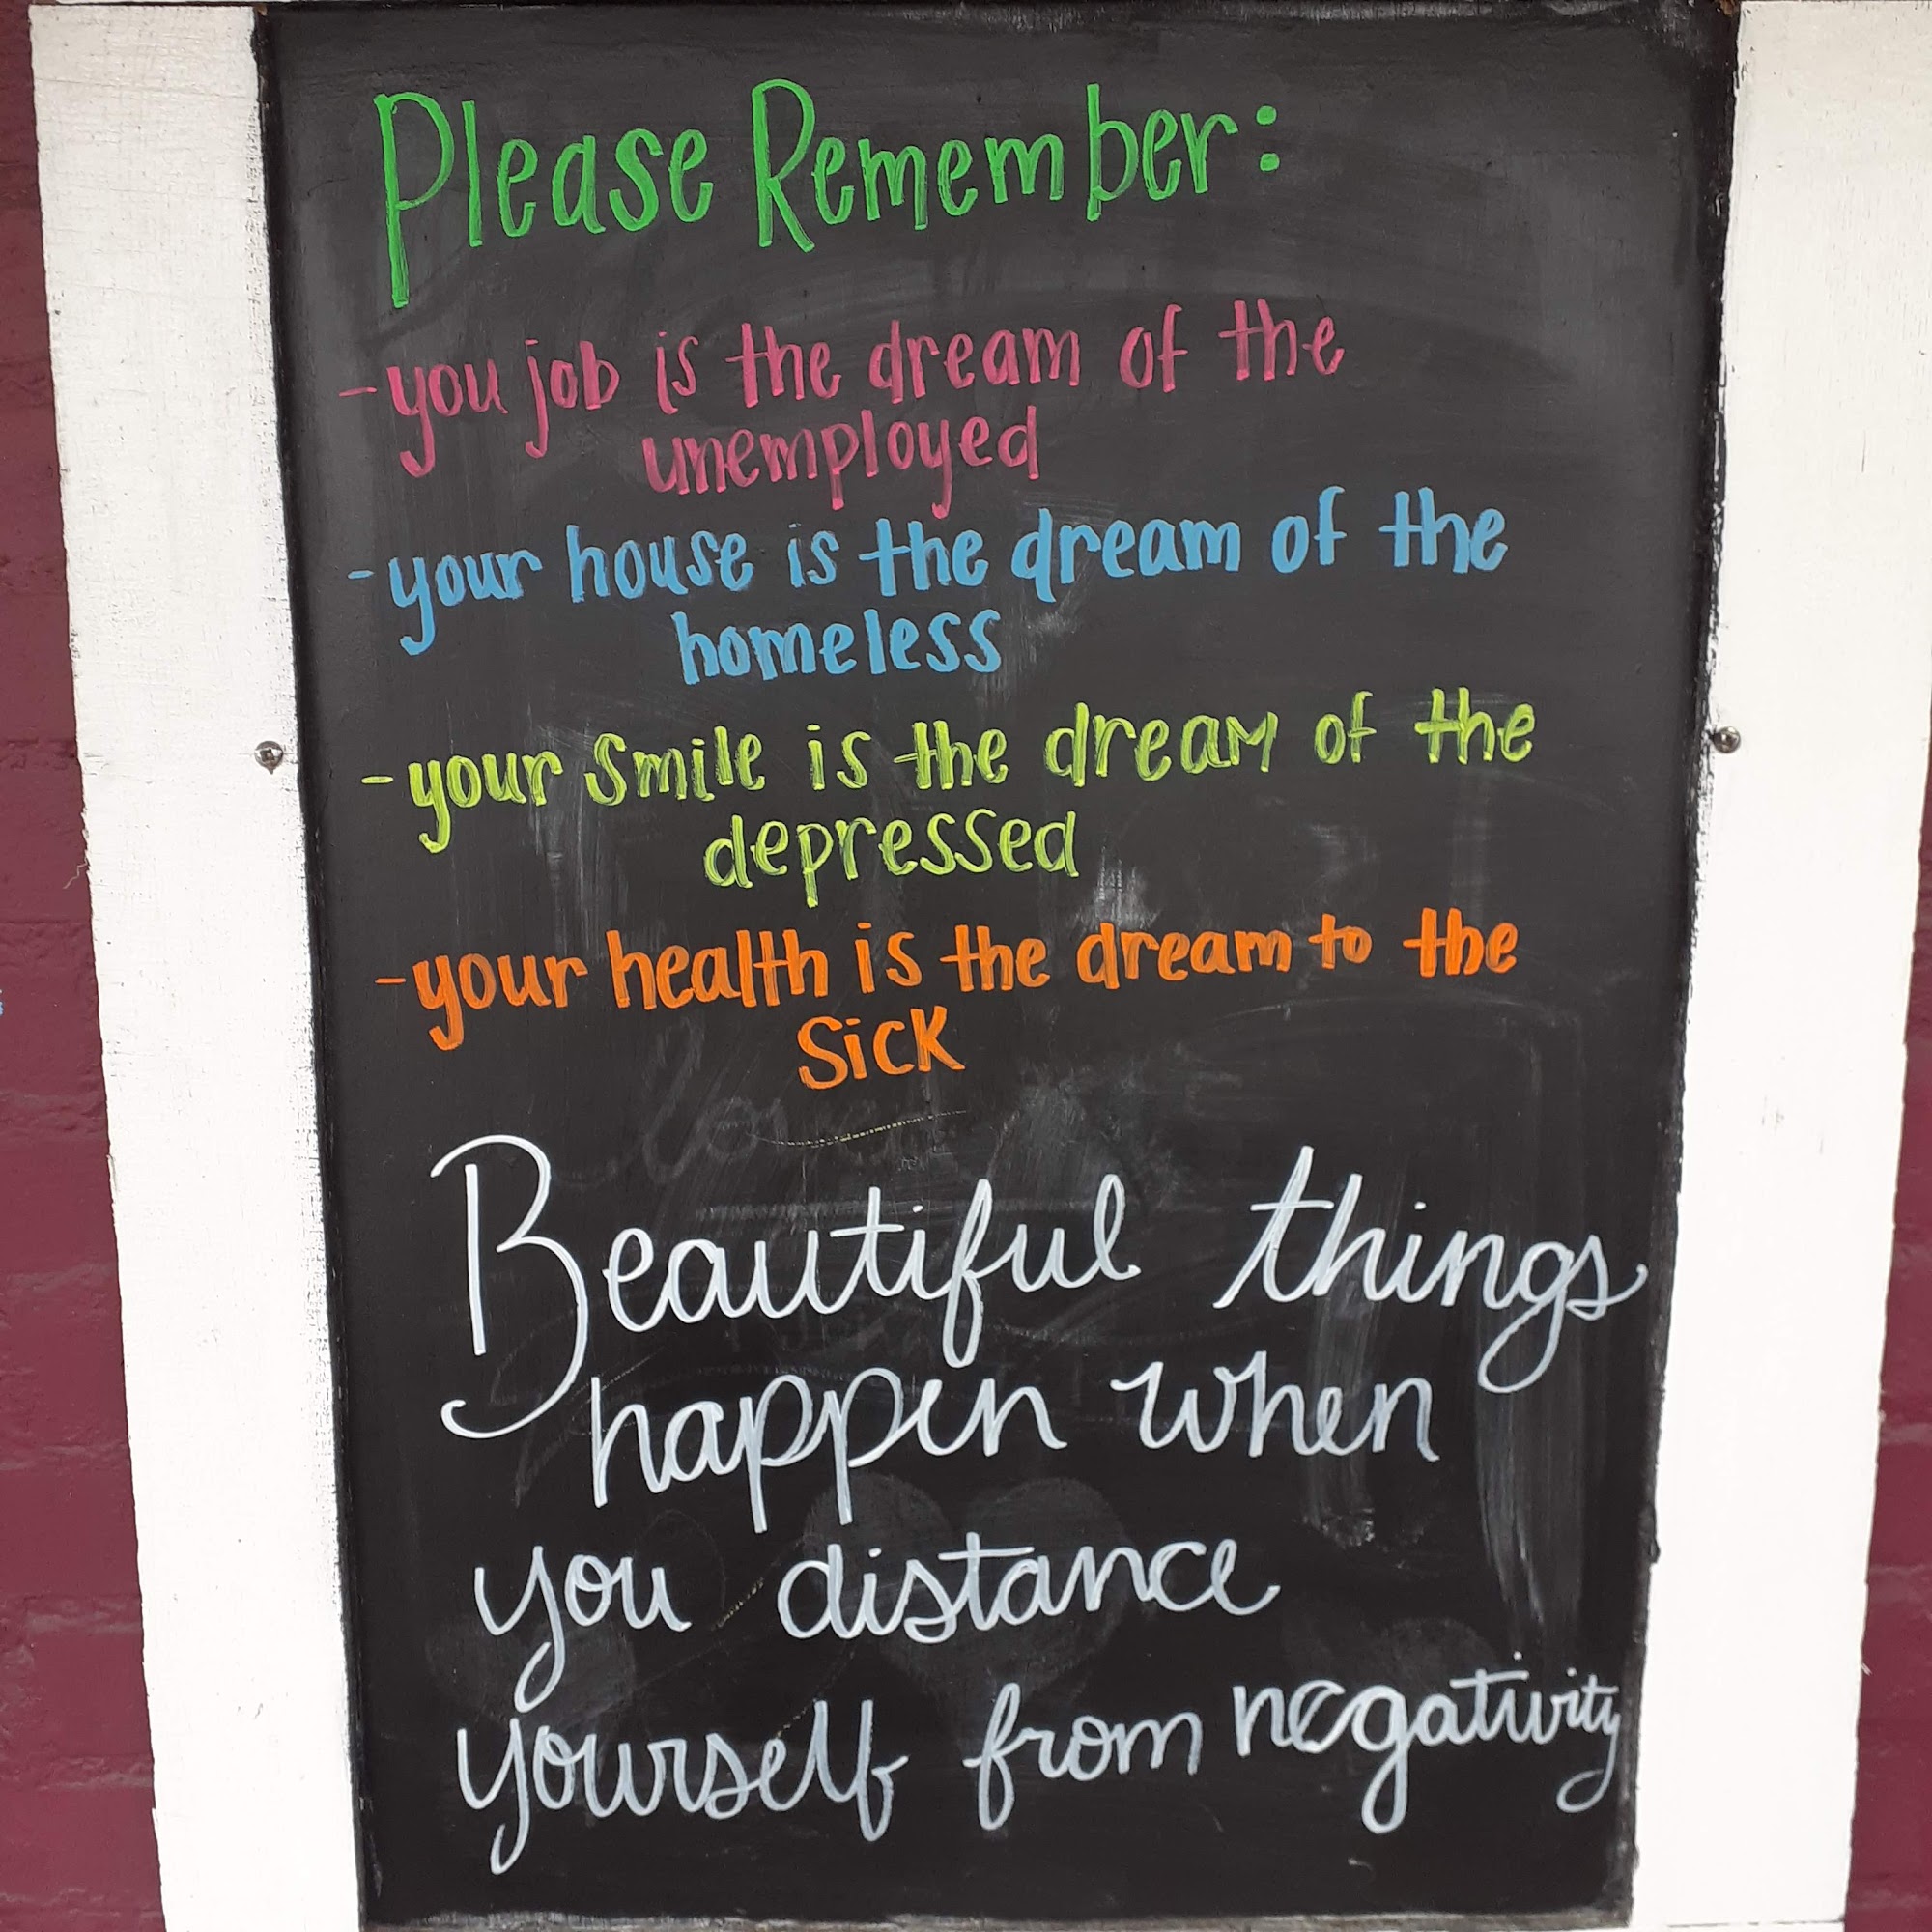 Please Remember:
-you job is the dream of the
unemployed
-your house is the dream of the
homeless
-your smile is the dream of the
depressed
-your health is the dream to the
sick
Beautiful things
happen when
you distance
yourself from negativity